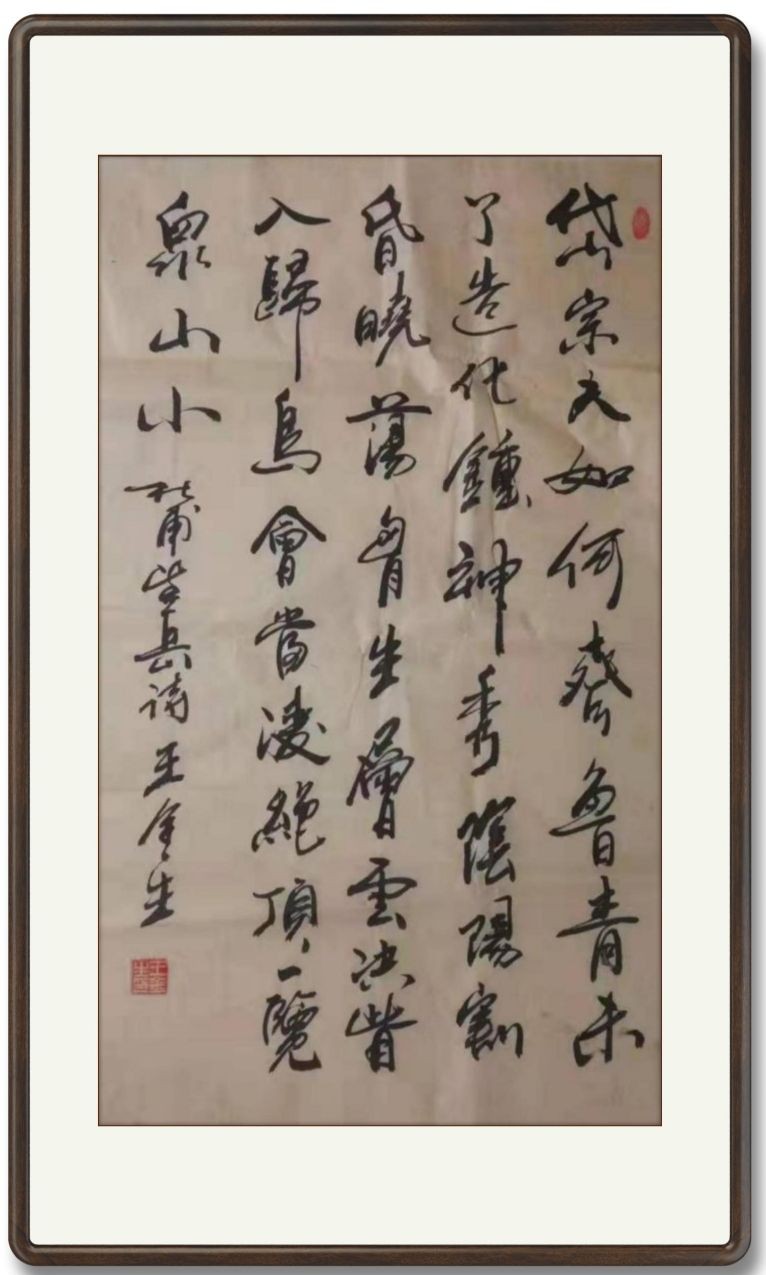 岱宗夫如何齊魯青未
了造化鍾神秀陰陽割
昏曉蕩胷生層雲決眥
入歸鳥會當凌絕頂一覽
衆山小 杜甫望岳诗 王金生